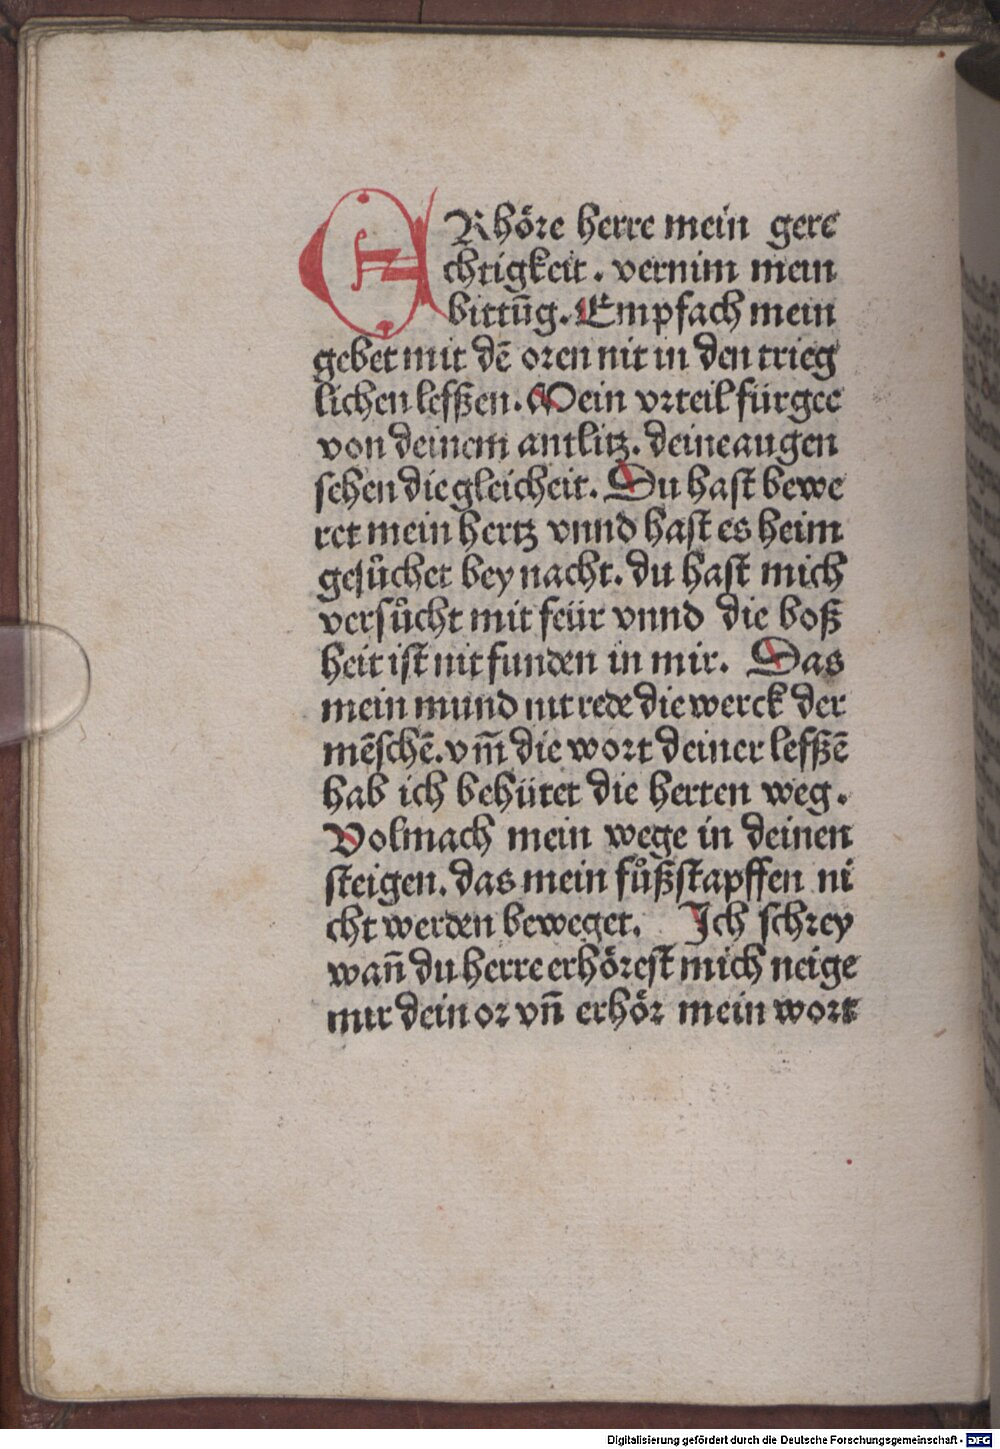 ERhöre herre mein gere
chtigkeit. vernim mein
bittūg. Empfach mein
gebet mit dē oren nit in den trieg
lichen lefßen. Mein vrteil fürgee
von deinem antlitz. deine augen
sehen die gleicheit. Du hast bewe
ret mein hertz vnnd hast es heim
gesůchet bey nacht. du hast mich
versůcht mit feür vnnd die boß
heit ist nit funden in mir. Das
mein mund nit rede die werck der
mēschē. vm̄ die wort deiner lefßē
hab ich behütet die herten weg.
Volmach mein wege in deinen
steigen. das mein fůßstapffen ni
cht werden beweget. Ich schrey
wañ du herre erhörest mich neige
mir dein or vñ erhör mein wort
Digitalisierung gefördert durch die Deutsche Forschungsgemeinschaft - DFG